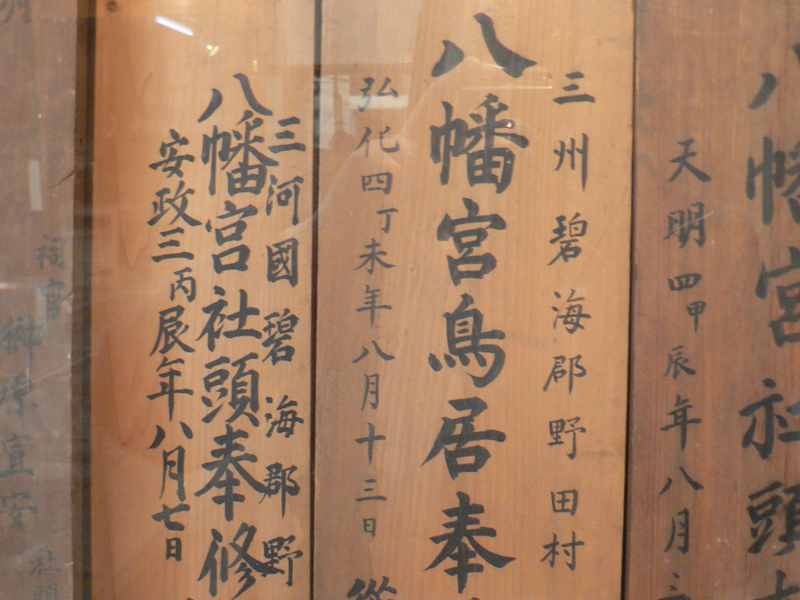 八幡宮社頭
天明四甲辰年八月三
三州碧海郡野田村
八幡宮鳥居奉
弘化四丁未年八月十三日
三河國碧海郡野
八幡宮社頭奉修
安政三丙辰年八月七日
祠官
榊原宣安
社頭